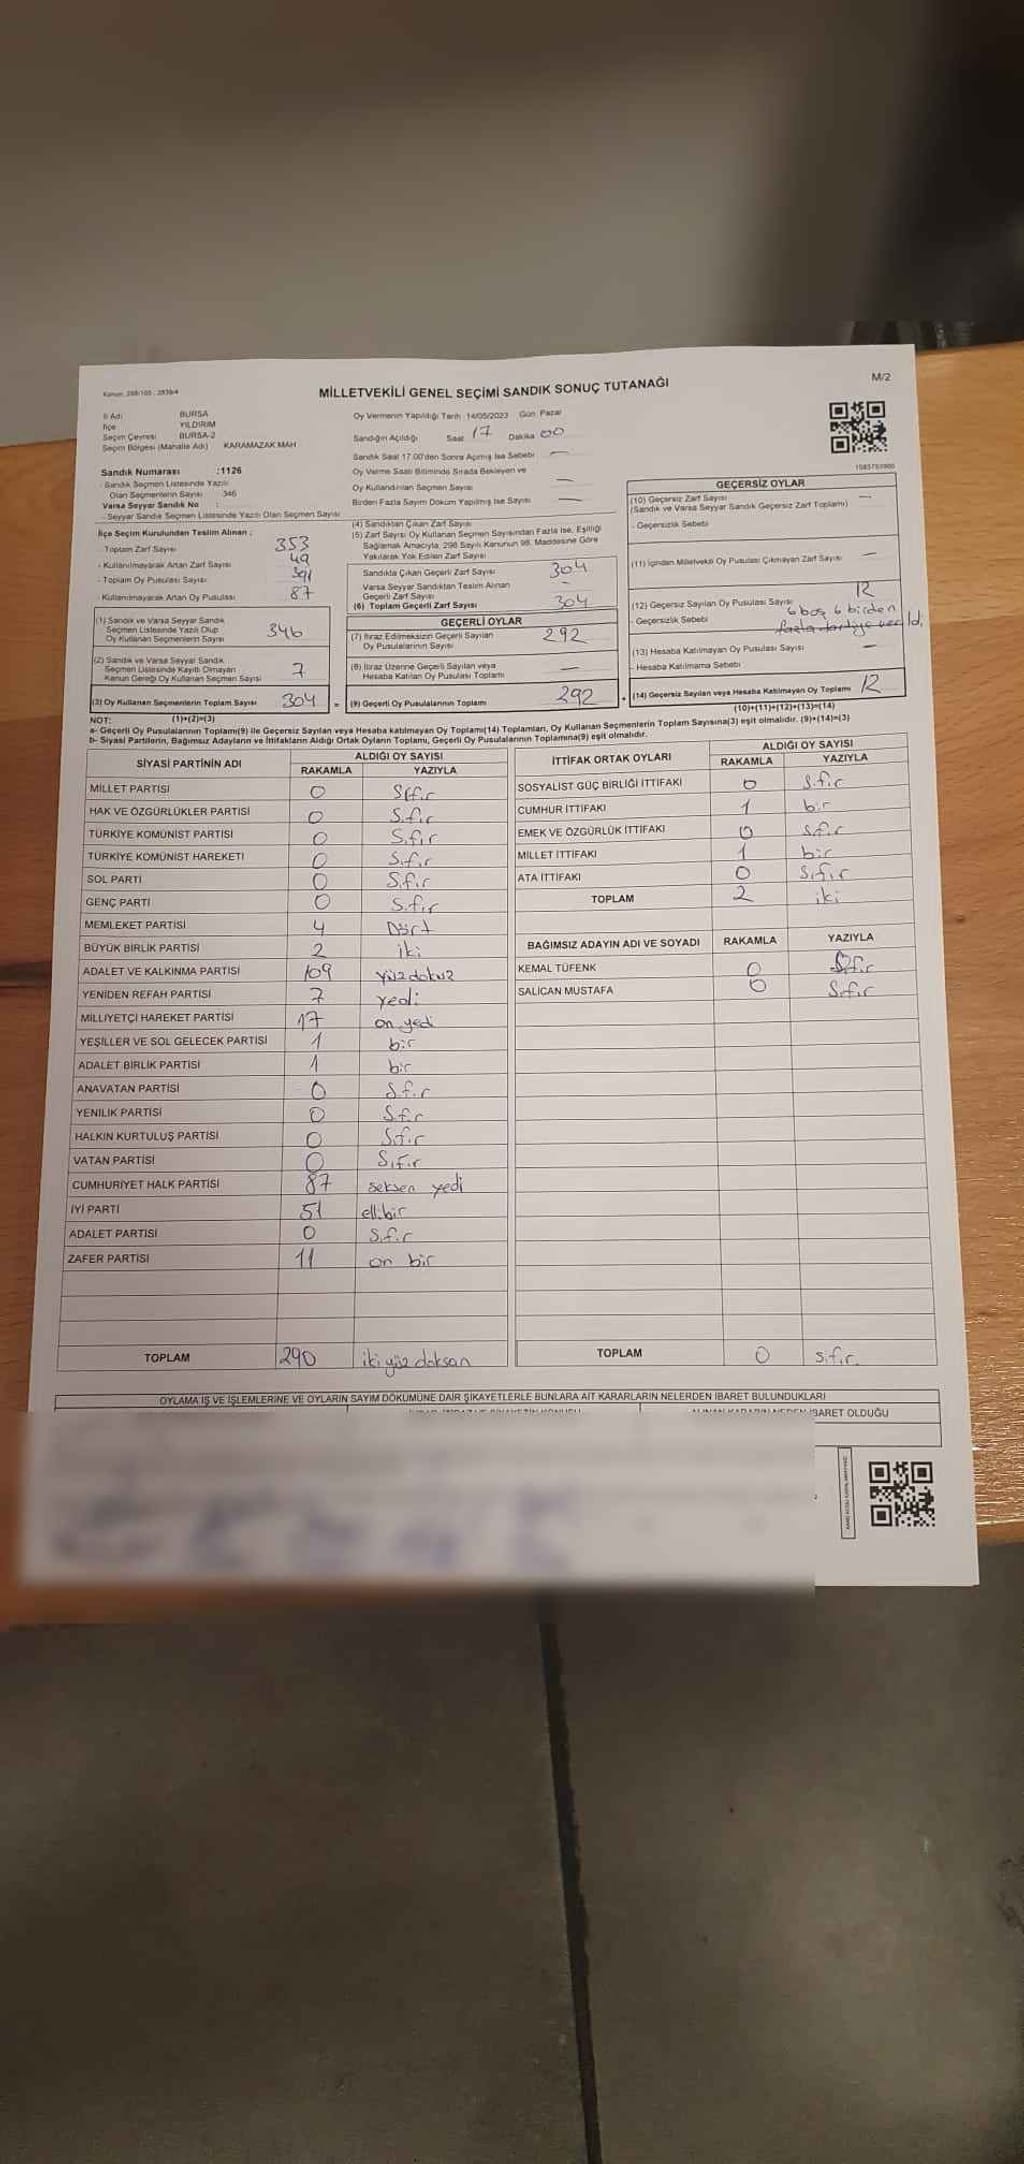 Kanun: 298/105 ; 2839/4
MİLLETVEKİLİ GENEL SEÇİMİ SANDIK SONUÇ TUTANAĞI
M/2
İl Adı BURSA
İlçe YILDIRIM
Seçim Çevresi BURSA-2
Seçim Bölgesi (Mahalle Adı) KARAMAZAK MAH
Sandık Numarası :1126
- Sandık Seçmen Listesinde Yazılı
Olan Seçmenlerin Sayısı 346
Varsa Seyyar Sandık No :
- Seyyar Sandık Seçmen Listesinde Yazılı Olan Seçmen Sayısı
Oy Vermenin Yapıldığı Tarih :14/05/2023 Gün: Pazar
Sandığın Açıldığı Saat 17 Dakika 00
Sandık Saat 17.00'den Sonra Açılmış İse Sebebi —
Oy Verme Saati Bitiminde Sırada Bekleyen ve
Oy Kullandırılan Seçmen Sayısı —
Birden Fazla Sayım Döküm Yapılmış İse Sayısı —
İlçe Seçim Kurulundan Teslim Alınan :
- Toplam Zarf Sayısı 353
- Kullanılmayarak Artan Zarf Sayısı 49
- Toplam Oy Pusulası Sayısı 391
- Kullanılmayarak Artan Oy Pusulası 87
(1) Sandık ve Varsa Seyyar Sandık
Seçmen Listesinde Yazılı Olup
Oy Kullanan Seçmenlerin Sayısı 346
(2) Sandık ve Varsa Seyyar Sandık
Seçmen Listesinde Kayıtlı Olmayan
Kanun Gereği Oy Kullanan Seçmen Sayısı 7
(3) Oy Kullanan Seçmenlerin Toplam Sayısı 304 =
(4) Sandıktan Çıkan Zarf Sayısı
(5) Zarf Sayısı Oy Kullanan Seçmen Sayısından Fazla ise, Eşitliği
Sağlamak Amacıyla, 298 Sayılı Kanunun 98. Maddesine Göre
Yakılarak Yok Edilen Zarf Sayısı
Sandıkta Çıkan Geçerli Zarf Sayısı 304
Varsa Seyyar Sandıktan Teslim Alınan
Geçerli Zarf Sayısı -
(6) Toplam Geçerli Zarf Sayısı 304
GEÇERLİ OYLAR
(7) İtiraz Edilmeksizin Geçerli Sayılan
Oy Pusulalarının Sayısı 292
(8) İtiraz Üzerine Geçerli Sayılan veya
Hesaba Katılan Oy Pusulası Toplamı —
(9) Geçerli Oy Pusulalarının Toplamı 292 +
GEÇERSİZ OYLAR
(10) Geçersiz Zarf Sayısı —
(Sandık ve Varsa Seyyar Sandık Geçersiz Zarf Toplamı)
- Geçersizlik Sebebi
(11) İçinden Milletvekili Oy Pusulası Çıkmayan Zarf Sayısı —
(12) Geçersiz Sayılan Oy Pusulası Sayısı 12
- Geçersizlik Sebebi 6 boş 6 birden
fazla partiye verildi
(13) Hesaba Katılmayan Oy Pusulası Sayısı —
- Hesaba Katılmama Sebebi
(14) Geçersiz Sayılan veya Hesaba Katılmayan Oy Toplamı 12
NOT: (1)+(2)=(3)
(10)+(11)+(12)+(13)=(14)
a- Geçerli Oy Pusulalarının Toplamı(9) ile Geçersiz Sayılan veya Hesaba katılmayan Oy Toplamı(14) Toplamları, Oy Kullanan Seçmenlerin Toplam Sayısına(3) eşit olmalıdır. (9)+(14)=(3)
b- Siyasi Partilerin, Bağımsız Adayların ve İttifakların Aldığı Ortak Oyların Toplamı, Geçerli Oy Pusulalarının Toplamına(9) eşit olmalıdır.
SİYASİ PARTİNİN ADI ALDIĞI OY SAYISI
RAKAMLA YAZIYLA
MİLLET PARTİSİ 0 Sıfır
HAK VE ÖZGÜRLÜKLER PARTİSİ 0 Sıfır
TÜRKİYE KOMÜNİST PARTİSİ 0 Sıfır
TÜRKİYE KOMÜNİST HAREKETİ 0 Sıfır
SOL PARTİ 0 Sıfır
GENÇ PARTİ 0 Sıfır
MEMLEKET PARTİSİ 4 Dört
BÜYÜK BİRLİK PARTİSİ 2 iki
ADALET VE KALKINMA PARTİSİ 109 yüzdokuz
YENİDEN REFAH PARTİSİ 7 yedi
MİLLİYETÇİ HAREKET PARTİSİ 17 on yedi
YEŞİLLER VE SOL GELECEK PARTİSİ 1 bir
ADALET BİRLİK PARTİSİ 1 bir
ANAVATAN PARTİSİ 0 Sıfır
YENİLİK PARTİSİ 0 Sıfır
HALKIN KURTULUŞ PARTİSİ 0 Sıfır
VATAN PARTİSİ 0 Sıfır
CUMHURİYET HALK PARTİSİ 87 seksen yedi
İYİ PARTİ 51 ellibir
ADALET PARTİSİ 0 Sıfır
ZAFER PARTİSİ 11 on bir
TOPLAM 290 iki yüz doksan
İTTİFAK ORTAK OYLARI ALDIĞI OY SAYISI
RAKAMLA YAZIYLA
SOSYALİST GÜÇ BİRLİĞİ İTTİFAKI 0 Sıfır
CUMHUR İTTİFAKI 1 bir
EMEK VE ÖZGÜRLÜK İTTİFAKI 0 Sıfır
MİLLET İTTİFAKI 1 bir
ATA İTTİFAKI 0 Sıfır
TOPLAM 2 iki
BAĞIMSIZ ADAYIN ADI VE SOYADI RAKAMLA YAZIYLA
KEMAL TÜFENK 0 Sıfır
SALİCAN MUSTAFA 0 Sıfır
TOPLAM 0 Sıfır
OYLAMA İŞ VE İŞLEMLERİNE VE OYLARIN SAYIM DÖKÜMÜNE DAİR ŞİKAYETLERLE BUNLARA AİT KARARLARIN NELERDEN İBARET BULUNDUKLARI
İBARET OLDUĞU